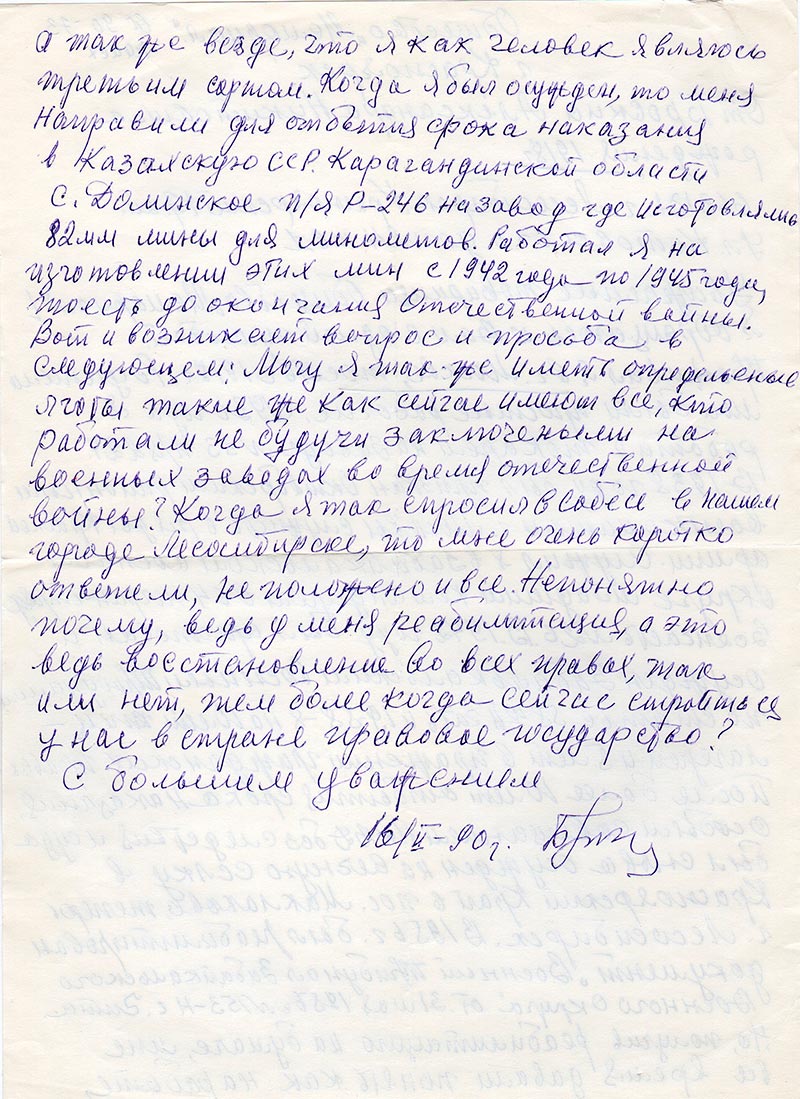 а так же везде, что я как человек являюсь
третьим сортом. Когда я был осужден, то меня
направили для отбытия срока наказания
в Казахскую ССР. Карагандинской области
с. Долинское п/я Р-246 на завод где изготовлялись
82мм мины для минометов. Работал я на
изготовлении этих мин с 1942 года по 1945 года,
тоесть до окончания Отечественной войны.
Вот и возникает вопрос и просьба в
следующем: Могу я так-же иметь определеные
льготы такие же как сейчас имеют все, кто
работали не будучи заключеными на
военных заводах во время отечественной
войны? Когда я так спросил в Собесе в нашем
городе Лесосибирске, то мне очень коротко
ответели, не положено и все. Непонятно
почему, ведь у меня реабилитация, а это
ведь восстановление во всех правах, так
или нет, тем более когда сейчас строиться
у нас в стране правовое государство?
С большим уважением
16/II-90г.